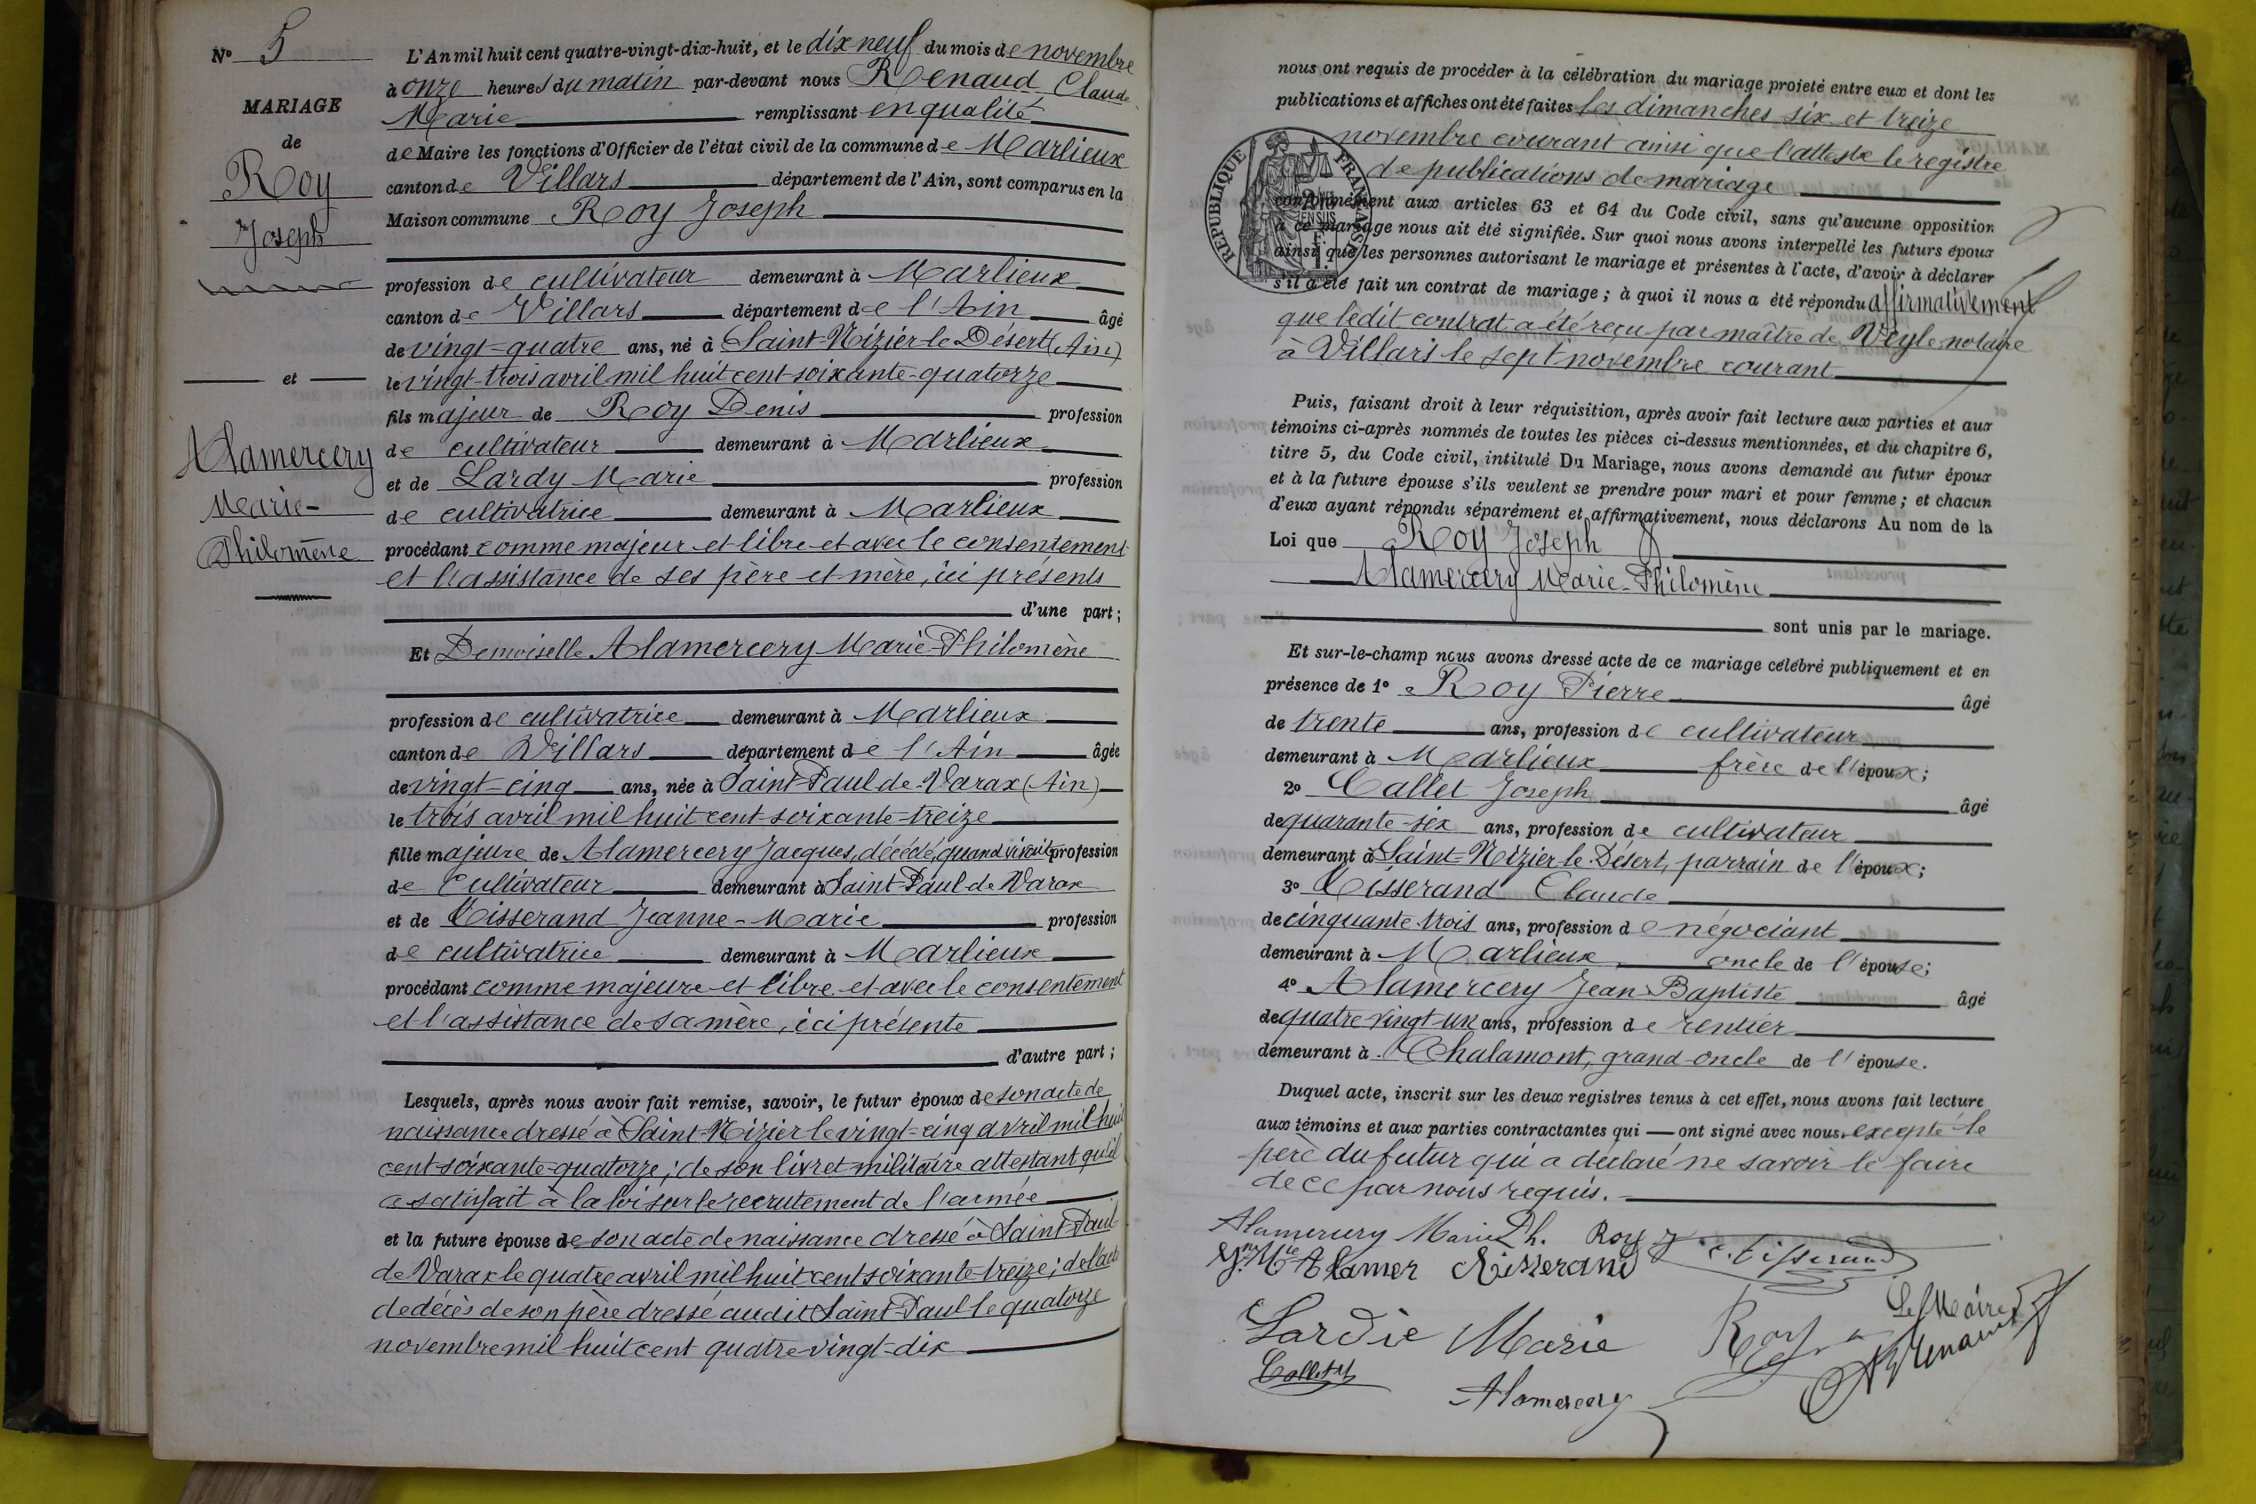 N° 5
MARIAGE
de
Roy
Joseph
et
Alamercery
Marie-
Philomène
L'An mil huit cent quatre-vingt-dix-huit, et le dix neuf du mois de novembre
à onze heures du matin par-devant nous Renaud Claude
Marie remplissant en qualité
de Maire les fonctions d'Officier de l'état civil de la commune de Marlieux
canton de Villars département de l'Ain, sont comparus en la
Maison commune Roy Joseph
profession de cultivateur demeurant à Marlieux
canton de Villars département de l'Ain âgé
de vingt-quatre ans, né à Saint-Nizier-le-Désert (Ain)
le vingt-trois avril mil huit cent soixante-quatorze
fils majeur de Roy Denis profession
de cultivateur demeurant à Marlieux
et de Lardy Marie profession
de cultivatrice demeurant à Marlieux
procédant comme majeur et libre et avec le consentement
et l'assistance de ses père et mère, ici présents
d'une part;
Et Demoiselle Alamercery Marie-Philomène
profession de cultivatrice demeurant à Marlieux
canton de Villars département de l'Ain âgée
de vingt-cinq ans, née à Saint-Paul-de-Varax (Ain)
le trois avril mil huit cent soixante-treize
fille majeure de Alamercery Jacques, décédé, quand vivait profession
de cultivateur demeurant à Saint-Paul-de-Varax
et de Tisserand Jeanne-Marie profession
de cultivatrice demeurant à Marlieux
procédant comme majeure et libre et avec le consentement
et l'assistance de sa mère, ici présente
d'autre part;
Lesquels, après nous avoir fait remise, savoir, le futur époux de son acte de
naissance dressé à Saint-Nizier le vingt-cinq avril mil huit
cent soixante-quatorze; de son livret militaire attestant qu'il
a satisfait à la loi sur le recrutement de l'armée
et la future épouse de son acte de naissance dressé à Saint-Paul-
de Varax le quatre avril mil huit cent soixante-treize; de l'acte
de décès de son père dressé audit Saint-Paul le quatorze
novembre mil huit cent quatre-vingt-dix
nous ont requis de procéder à la célébration du mariage projeté entre eux et dont les
publications et affiches ont été faites les dimanches six et treize
novembre courant ainsi que l'atteste le registre
de publications de mariage
conformément aux articles 63 et 64 du Code civil, sans qu'aucune opposition
à ce mariage nous ait été signifiée. Sur quoi nous avons interpellé les futurs époux
ainsi que les personnes autorisant le mariage et présentes à l'acte, d'avoir à déclarer
s'il a été fait un contrat de mariage; à quoi il nous a été répondu affirmativement
que ledit contrat a été reçu par maître de Veyle notaire
à Villars le sept novembre courant
RÉPUBLIQUE FRANÇAISE
Puis, faisant droit à leur réquisition, après avoir fait lecture aux parties et aux
témoins ci-après nommés de toutes les pièces ci-dessus mentionnées, et du chapitre 6,
titre 5, du Code civil, intitulé Du Mariage, nous avons demandé au futur époux
et à la future épouse s'ils veulent se prendre pour mari et pour femme; et chacun
d'eux ayant répondu séparément et affirmativement, nous déclarons Au nom de la
Loi que Roy Joseph &
Alamercery Marie-Philomène
sont unis par le mariage.
Et sur-le-champ nous avons dressé acte de ce mariage célébré publiquement et en
présence de 1° Roy Pierre âgé
de trente ans, profession de cultivateur
demeurant à Marlieux frère de l'époux;
2° Collet Joseph âgé
de quarante-six ans, profession de cultivateur
demeurant à Saint-Nizier-le-Désert, parrain de l'époux;
3° Tisserand Claude
de cinquante-trois ans, profession de négociant
demeurant à Marlieux, oncle de l'épouse;
4° Alamercery Jean-Baptiste âgé
de quatre vingt-un ans, profession de rentier
demeurant à Chalamont, grand-oncle de l'épouse.
Duquel acte, inscrit sur les deux registres tenus à cet effet, nous avons fait lecture
aux témoins et aux parties contractantes qui — ont signé avec nous excepté le
père du futur qui a déclaré ne savoir le faire
de ce par nous requis.
Alamercery Marie Ph. Roy J. C. Tisserand
Alamer Tisserand
Lardie Marie Roy Le Maire
Collet Renaud
Alamercery